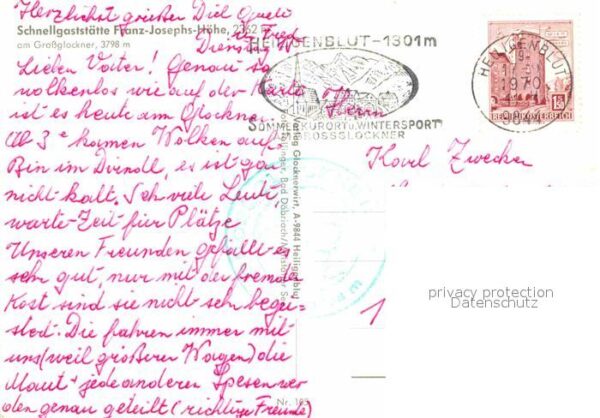 Herzlichst grüßen Dich Gueli
u. Fred
Schnellgaststätte Franz-Josephs-Höhe, 2362 m
am Großglockner, 3798 m
Dienstag
Lieber Vater! Genau so
wolkenlos wie auf der Karte
ist es heute am Glockner
Ab 3 e kamen Wolken auf.
Bin im Dirndl, es ist gar
nicht kalt. Sehr viele Leute,
warte-Zeit für Plätze
Unseren Freunden gefällt es
sehr gut, nur mit der fremden
Kost sind sie nicht sehr begei-
stert. Die fahren immer mit
uns (weil größerer Wagen) die
Maut + jede anderen Spesen wer
den genau geteilt (richtige Freunde)
HEILIGENBLUT-1301m
SOMMERKURORT u. WINTERSPORT
GROSSGLOCKNER
HEILIGENBLUT
1970
9844
REPUBLIK ÖSTERREICH
Herrn
Karl Zwecker
Verlag Glocknerwirt, A-9844 Heiligenblut
1
Nr. 103
privacy protection
Datenschutz